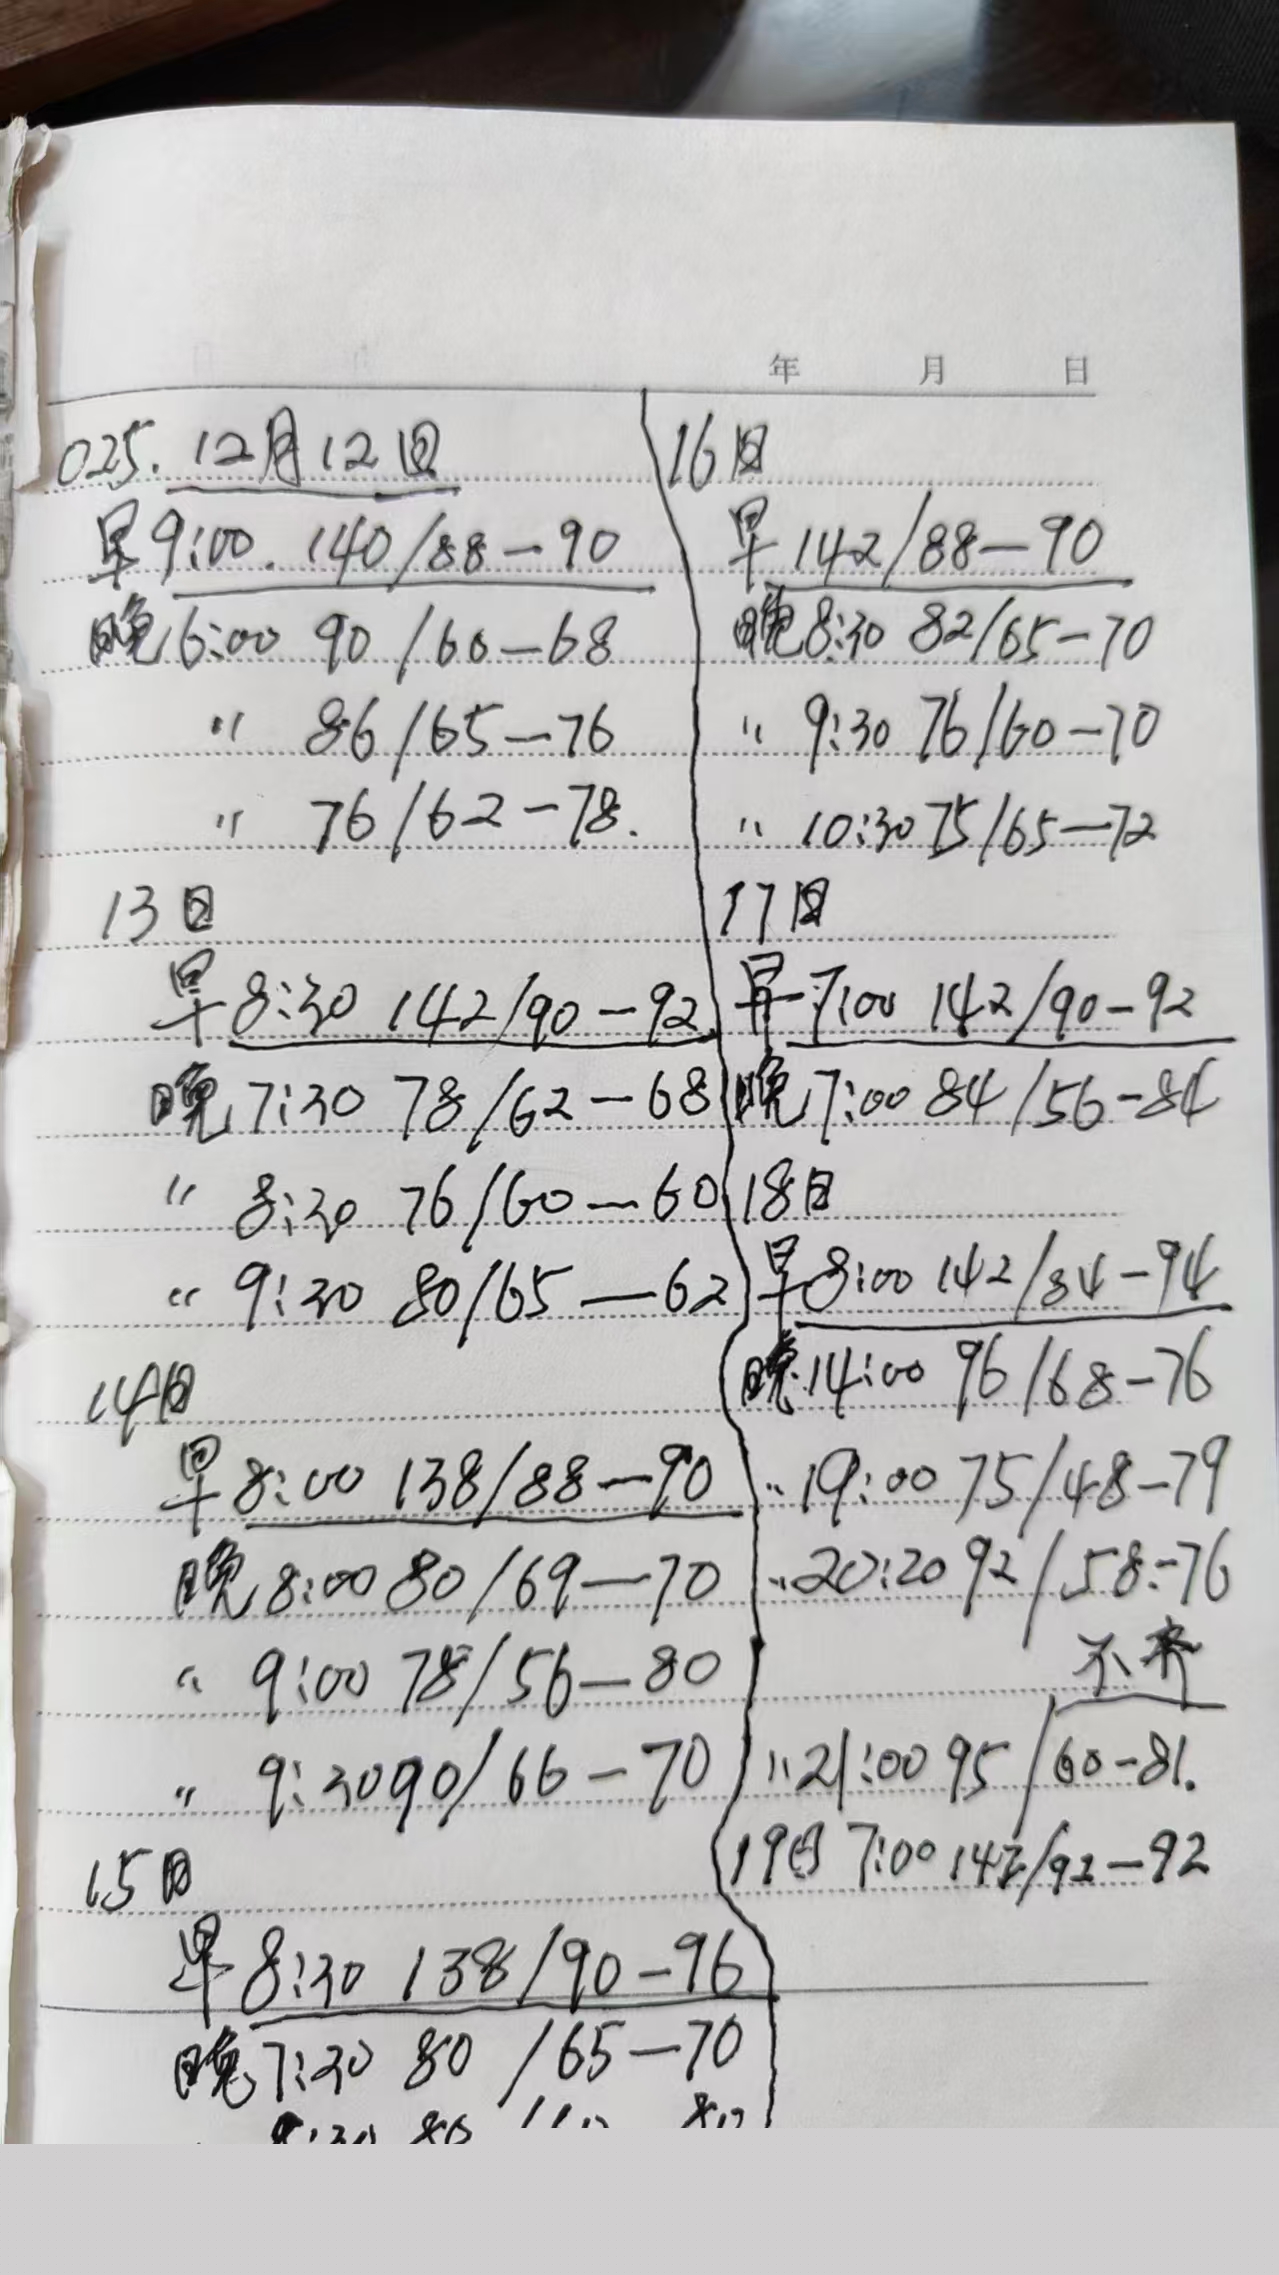 年 月 日
025. 12月12日
早9:00. 140/88-90
晚6:00 90/60-68
" 86/65-76
" 76/62-78.
13日
早8:30 142/90-92
晚7:30 78/62-68
" 8:30 76/60-60
" 9:30 80/65-62
14日
早8:00 138/88-90
晚8:00 80/69-70
" 9:00 78/56-80
" 9:30 90/66-70
15日
早8:30 138/90-96
晚7:30 80/65-70
16日
早142/88-90
晚8:30 82/65-70
" 9:30 76/60-70
" 10:30 75/65-72
17日
早7:00 142/90-92
晚7:00 84/56-84
18日
早8:00 142/84-94
晚14:00 96/68-76
" 19:00 75/48-79
" 20:20 92/58-76
" 21:00 95/60-81.
19日 7:00 /92-92